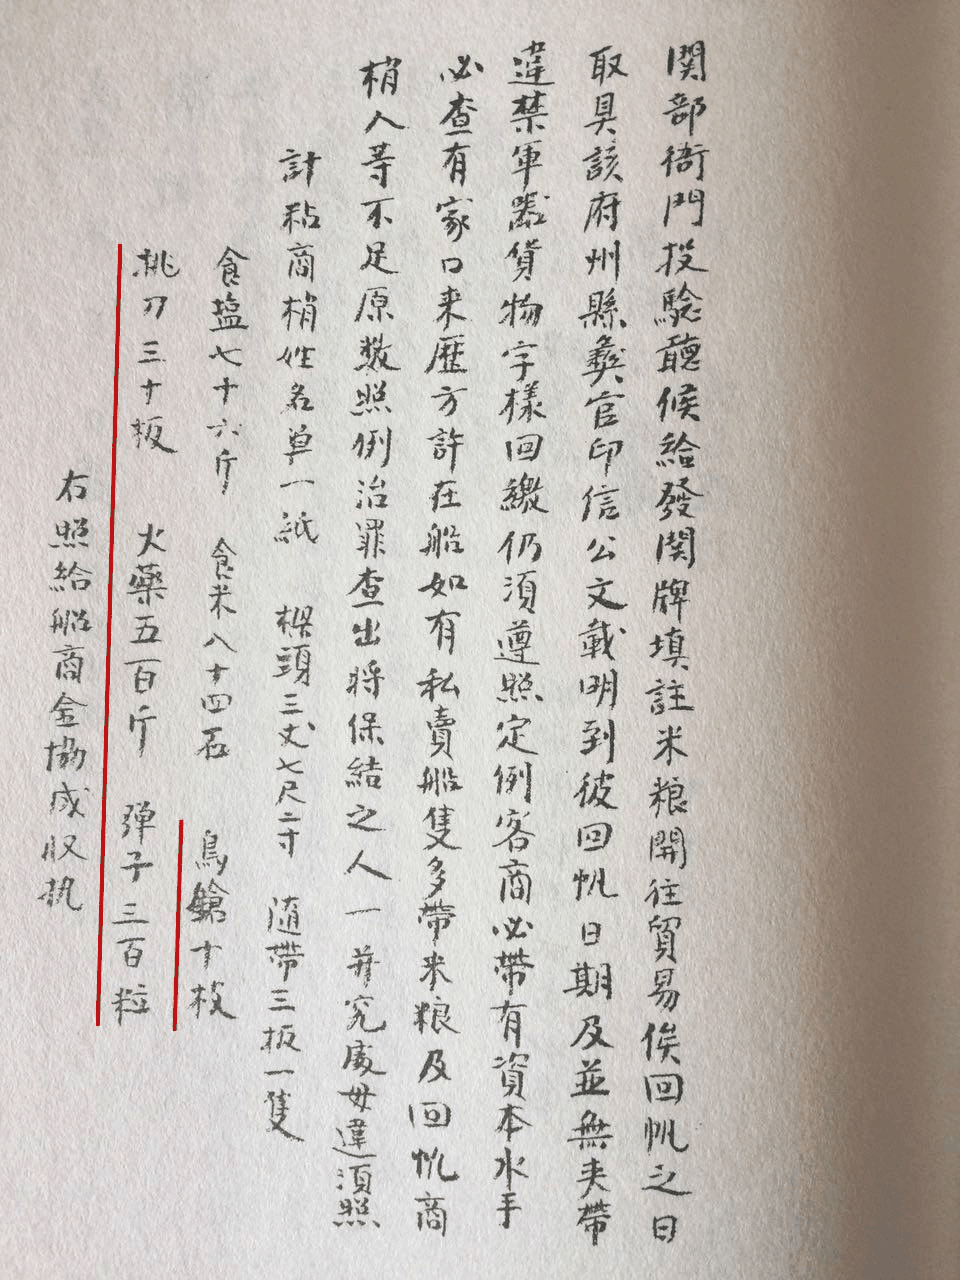 関部衙門投驗聽候給發関牌填註米粮開往貿易俟回帆之日
取具該府州縣彝官印信公文載明到彼回帆日期及並無夹帶
違禁軍器貨物字様回繳仍須遵照定例客商必帶有資本水手
必查有家口来歷方許在船如有私賣船隻多帶米粮及回帆商
梢人等不足原数照例治罪查出将保結之人一并究處毋違須照
計粘商梢姓名单一紙 樑頭三丈七尺二寸 随帶三板一隻
食塩七十六斤 食米八十四石 鳥鎗十枝
挑刀三十板 火藥五百斤 弹子三百粒
右照給船商金協成収执